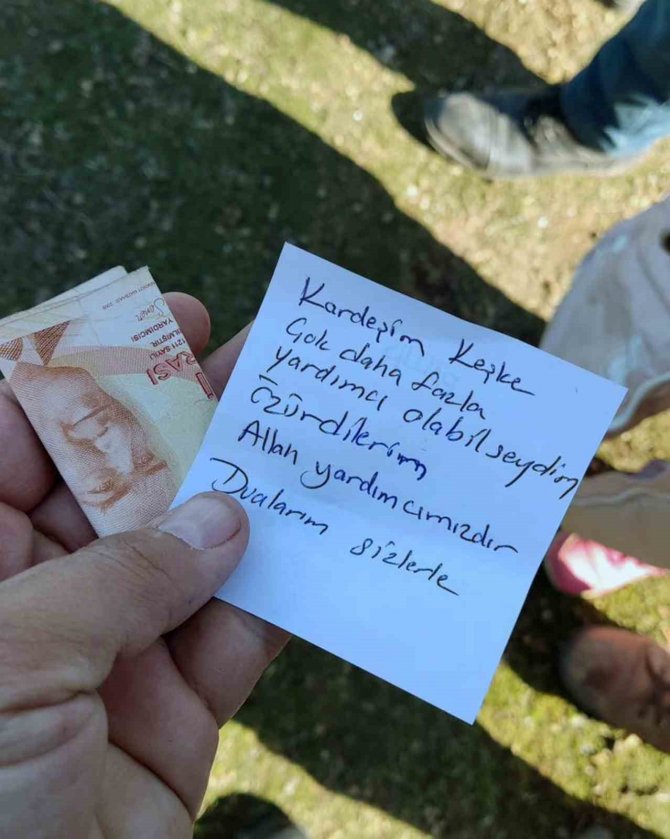 Kardeşim Keşke
Çok daha fazla
yardımcı olabilseydim
Özürdilerim
Allah yardımcımızdır
Dualarım sizlerle
1211 SAYILI
YARDIMCISI
RASI